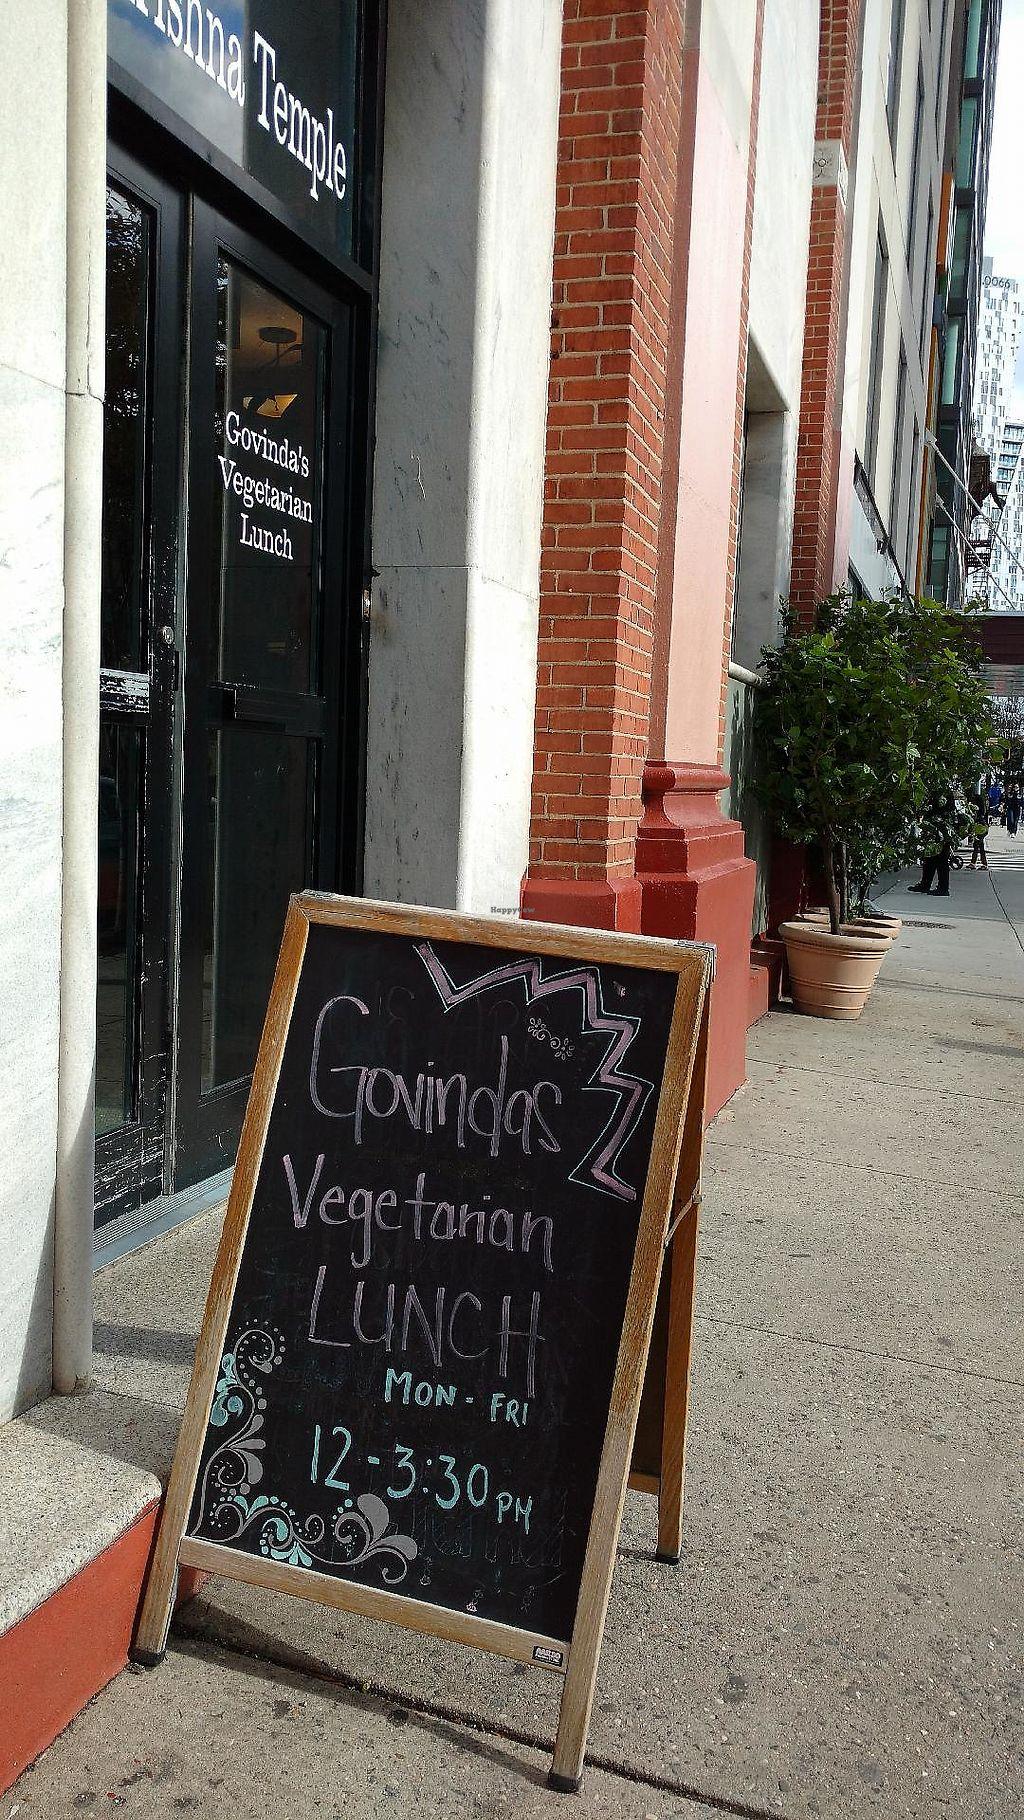 rishna Temple
Govinda's
Vegetarian
Lunch
HappyCow
Govindas
Vegetarian
LUNCH
MON - FRI
12-3:30 PM